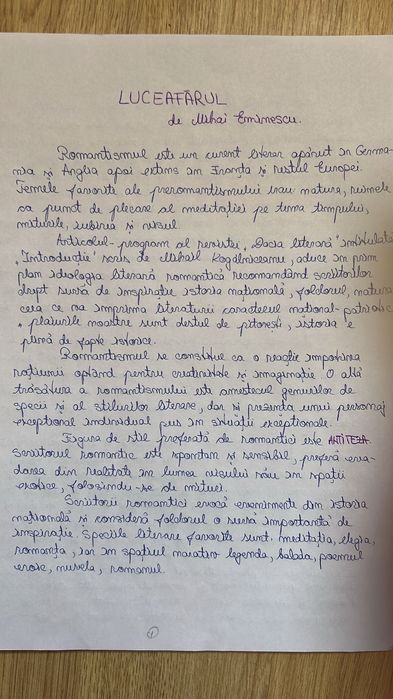 LUCEAFĂRUL
de Mihai Eminescu.
Romantismul este un curent literar apărut în Germa-
nia și Anglia apoi extins în Franța și restul Europei.
Temele favorite ale preromantismului erau natura, ruinele
ca punct de plecare al meditației pe tema timpului,
miturile, iubirea și visul.
Articolul-program al revistei „Dacia literară" intitulată
„Introducție" scris de Mihail Kogălniceanu, aduce în prim
plan ideologia literară romantică recomandând scriitorilor
drept sursă de inspirație istoria națională, folclorul, natura
ceea ce va imprima literaturii caracterul național-patriotic
„plaiurile noastre sunt destul de pitorești, istoria e
plină de fapte istorice.
Romantismul se constituie ca o reacție împotriva
rațiunii optând pentru creativitate și imaginație. O altă
trăsătură a romantismului este amestecul genurilor de
specii și al stilurilor literare, dar și prezența unui personaj
excepțional individual pus în situații excepționale.
Figura de stil preferată de romantici este ANTITEZA.
Scriitorul romantic este spontan și sensibil, preferă eva-
darea din realitate în lumea visului sau în spații
exotice, folosindu-se de mituri.
Scriitorii romantici evocă evenimente din istoria
națională și consideră folclorul o sursă importantă de
inspirație. Speciile literare favorite sunt: meditația, elegia,
romanța, iar în spațiul narativ legenda, balada, poemul
eroic, nuvela, romanul.
1